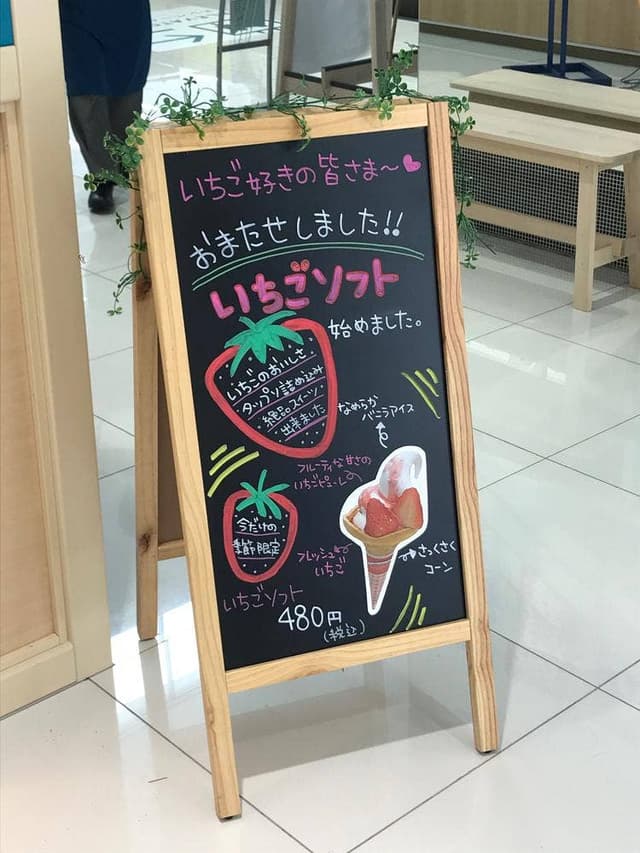 いちご好きの皆さま〜♥
おまたせしました!!
いちごソフト
始めました。
いちごのおいしさ
タップリ詰め込み
絶品スイーツ
出来ました
なめらか
バニラアイス
フルーティな甘さの
いちごピューレ
今だけの
季節限定
フレッシュ
いちご
さっくさく
コーン
いちごソフト
480円
(税込)